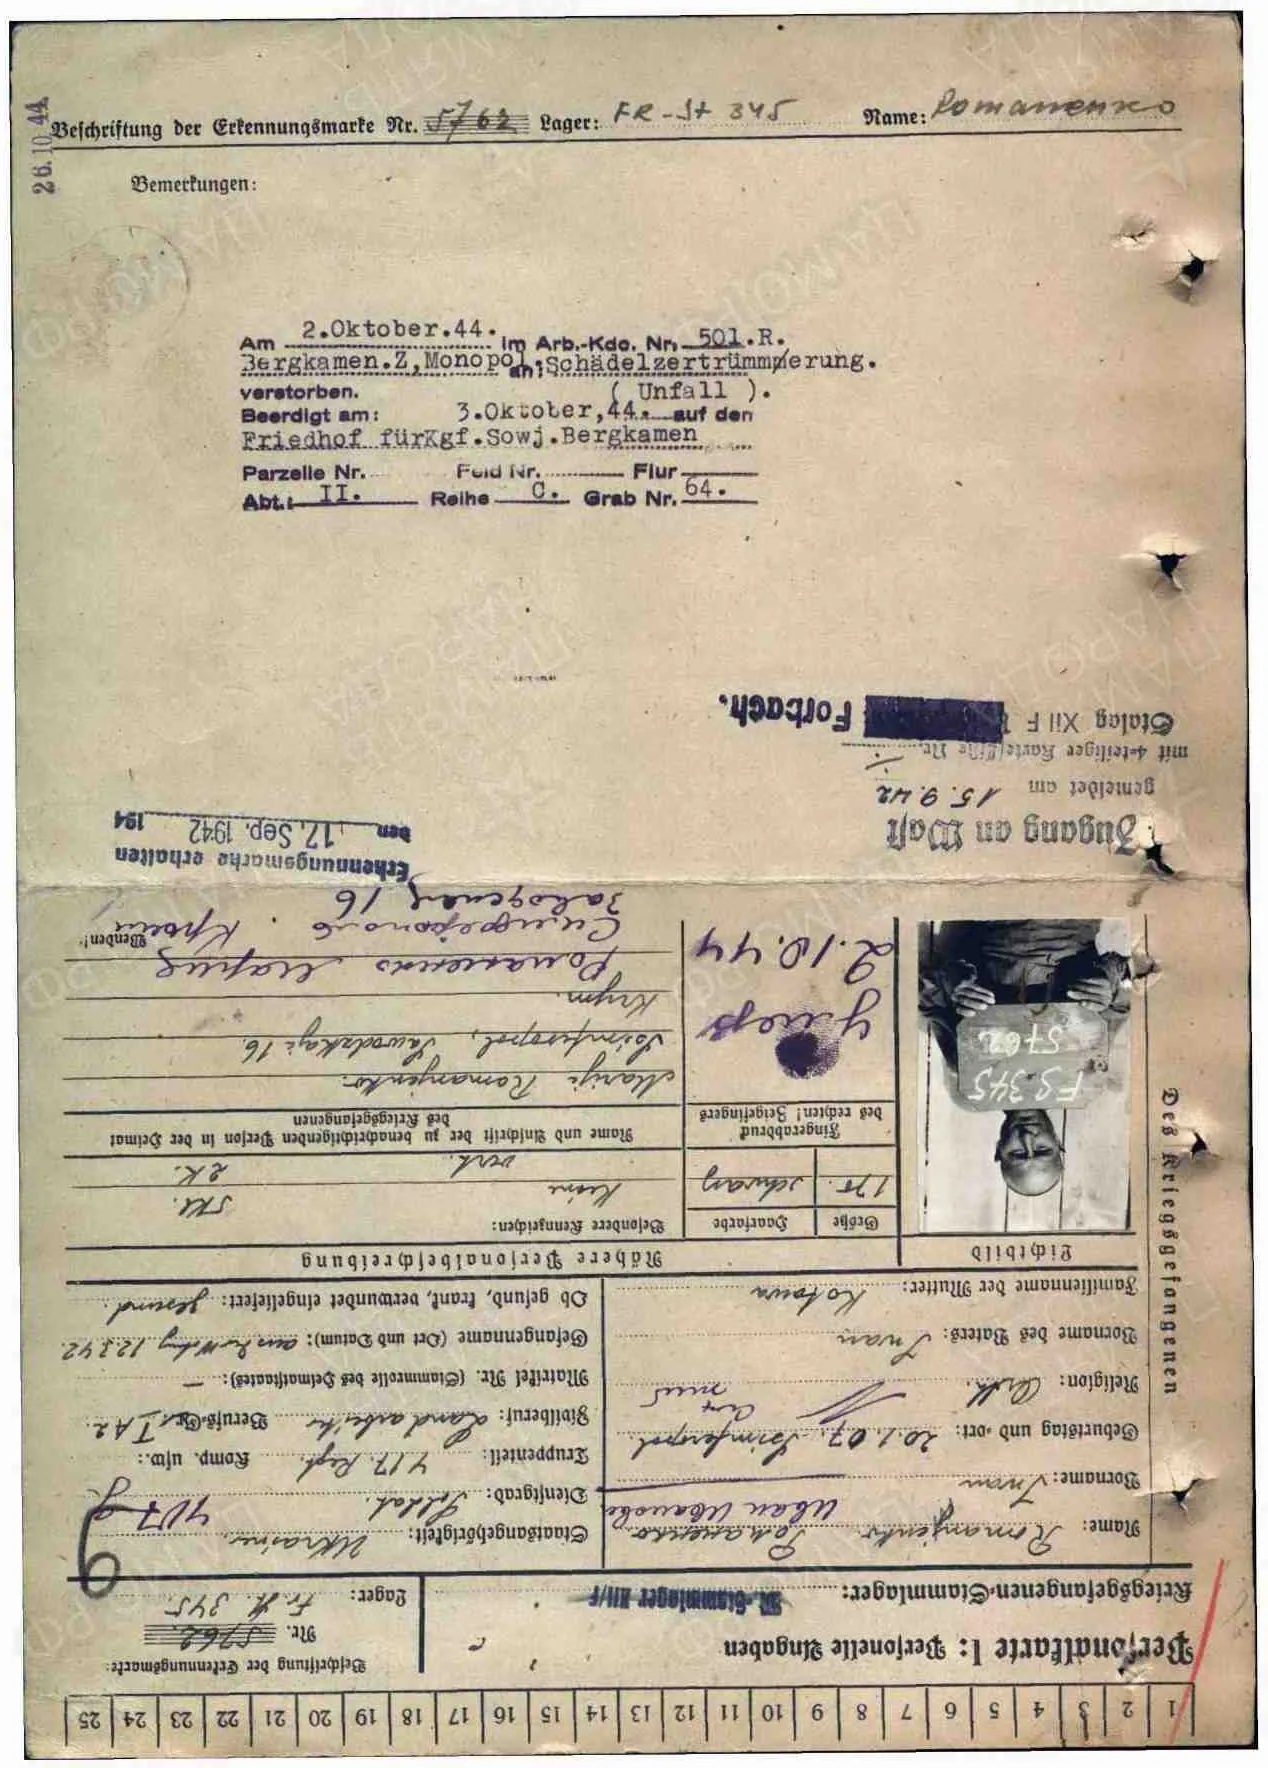 26.10.44
Beschriftung der Erkennungsmarke Nr. 5762 Lager: FR-St 345 Name: Romanenko
Bemerkungen:
Am 2.Oktober.44. im Arb.-Kdo. Nr. 501.R.
Bergkamen.Z,Monopol an: Schädelzertrümmerung.
verstorben. ( Unfall ).
Beerdigt am: 3.Oktober,44. auf den
Friedhof fürKgf.Sowj.Bergkamen
Parzelle Nr. Feld Nr. Flur
Abt.: II. Reihe C. Grab Nr. 64.
1 2 3 4 5 6 7 8 9 10 11 12 13 14 15 16 17 18 19 20 21 22 23 24 25
Personalkarte I: Personelle Angaben
Beschriftung der Erkennungsmarke:
Nr. 5762
Kriegsgefangenen-Stammlager: M.-Stammlager XII/F
Lager: Fr. St. 345
Des Kriegsgefangenen
Name: Romanjenko Романенко
Vorname: Iwan Иван Иванович
Geburtstag und -ort: 20.1.07. Simferopol
Religion: Orth.
Vorname des Vaters: Iwan
Familienname der Mutter: Kotowa
Staatsangehörigkeit: Ukraine
Dienstgrad: Soldat
Truppenteil: 417. Regt. Komp. usw.:
Zivilberuf: Landarbeiter Berufs-Gr.: I A 2
Matrikel Nr. (Stammrolle des Heimatstaates): —
Gefangennahme (Ort und Datum): 12.3.42.
Ob gesund, krank, verwundet eingeliefert: gesund.
Lichtbild
Nähere Personalbeschreibung
Größe Haarfarbe Besondere Kennzeichen:
1,75. schwarz Keine
verh. 2 K.
Fingerabdruck
des rechten! Zeigefingers
Name und Anschrift der zu benachrichtigenden Person in der Heimat
des Kriegsgefangenen
FS 345
5762
Marija Romanjenko.
Simferopol, Sawodskaja 16
Krym.
Умер
2.10.44
Романенко Мария
Симферополь. Крым
16
Wenden!
Zugang an Wast
gemeldet am 15.9.42
mit 4-teiliger Kartei/Liste Nr.
Stalag XII F Forbach.
Erkennungsmarke erhalten
den 17. Sep. 1942 194